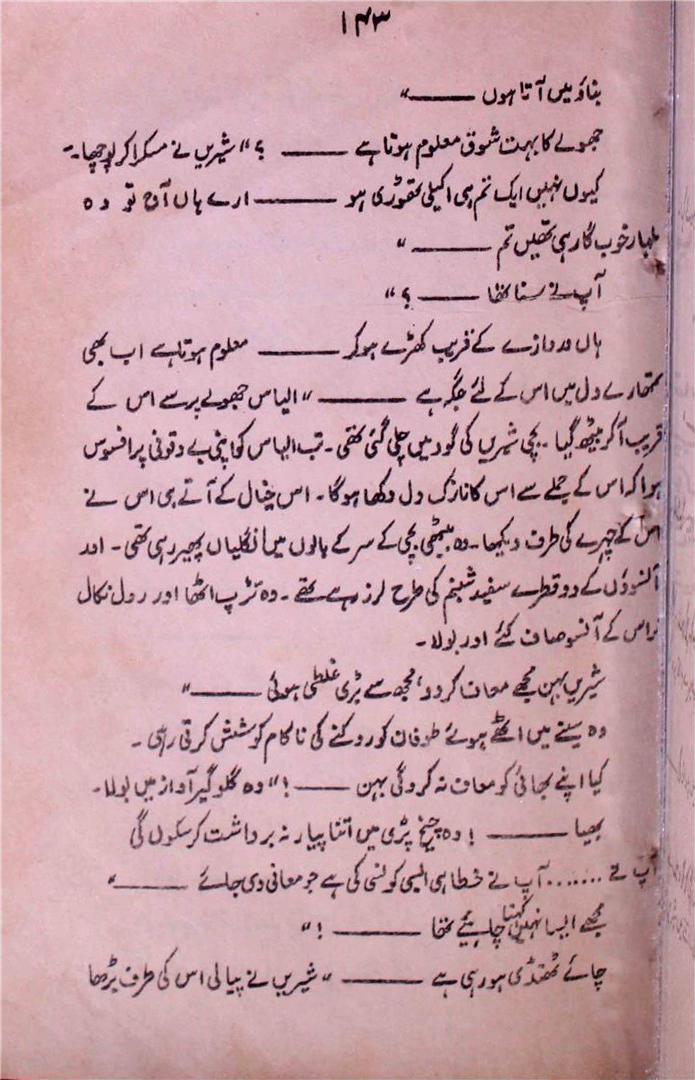 ۱۴۳
بناؤ میں آتا ہوں ـــــــ"
جھولے کا بہت شوق معلوم ہوتا ہے ـــــــ ؟" شیریں نے مسکرا کر پوچھا۔
کیوں نہیں ایک تم ہی اکیلی تھوڑی ہو ـــــــ ارے ہاں آج تو وہ
ملہار خوب گا رہی تھیں تم ـــــــ"
آپ نے سنا تھا ـــــــ ؟"
ہاں دروازے کے قریب کھڑے ہو کر ـــــــ معلوم ہوتا ہے اب بھی
تمھارے دل میں اس کے لئے جگہ ہے ـــــــ" الیاس جھولے پر سے اس کے
قریب آکر بیٹھ گیا۔ بچی شیریں کی گود میں چلی گئی تھی۔ تب الیاس کو اپنی بے وقوفی پر افسوس
ہوا کہ اس کے جملے سے اس کا نازک دل دکھا ہوگا۔ اس خیال کے آتے ہی اس نے
اس کے چہرے کی طرف دیکھا۔ وہ بیٹھی بچی کے سر کے بالوں میں انگلیاں پھیر رہی تھی۔ اور
آنسوؤں کے دو قطرے سفید شبنم کی طرح لرز رہے تھے۔ وہ تڑپ اٹھا اور رول نکال
کر اس کے آنسو صاف کئے اور بولا۔
شیریں بہن مجھے معاف کردو، مجھ سے بڑی غلطی ہوئی ـــــــ"
وہ سینے میں اٹھے ہوئے طوفان کو روکنے کی ناکام کوشش کرتی رہی۔
کیا اپنے بھائی کو معاف نہ کروگی بہن ـــــــ !" وہ گلوگیر آواز میں بولا۔
بھیا ـــــــ ! وہ چیخ پڑی میں اتنا پیار نہ برداشت کرسکوں گی
آپ نے ....... آپ نے خطا ہی ایسی کونسی کی ہے جو معافی دی جائے ـــــــ"
مجھے ایسا نہیں کہنا چاہیئے تھا ـــــــ !"
چائے ٹھنڈی ہو رہی ہے ـــــــ" شیریں نے پیالی اس کی طرف بڑھا